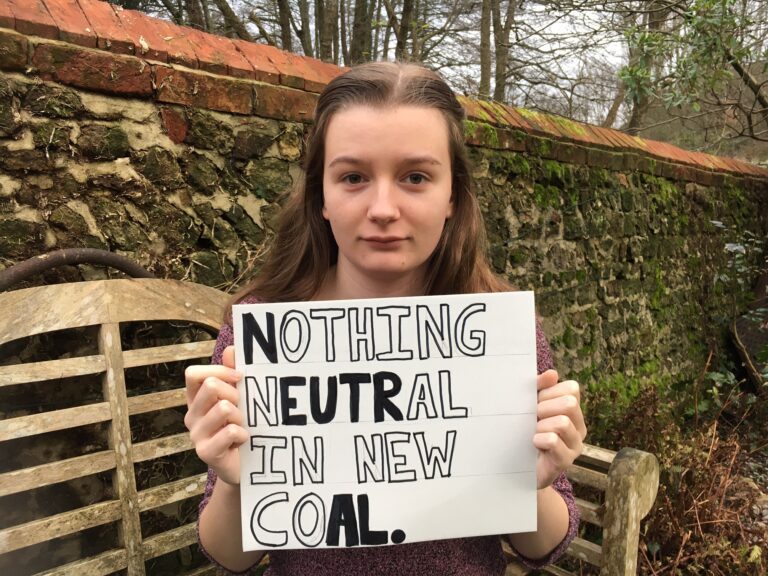 NOTHING
NEUTRAL
IN NEW
COAL.